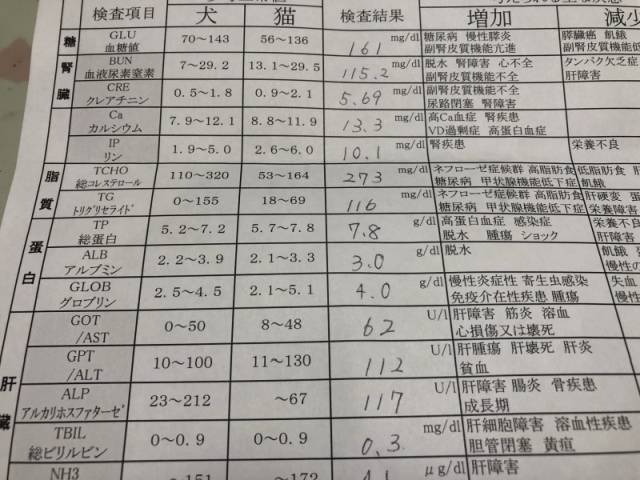 検査項目 犬 猫 検査結果 増加 減少
糖 GLU 70～143 56～136 161 mg/dl 糖尿病 慢性膵炎 膵臓癌 飢餓
血糖値 副腎皮質機能亢進 副腎皮質機能低
腎臓 BUN 7～29.2 13.1～29.5 115.2 mg/dl 脱水 腎障害 心不全 タンパク欠乏症
血液尿素窒素 副腎皮質機能不全 肝障害
CRE 0.5～1.8 0.9～2.1 5.69 mg/dl 副腎皮質機能不全
クレアチニン 尿路閉塞 腎障害
Ca 7.9～12.1 8.8～11.9 13.3 mg/dl 高Ca血症 腎疾患
カルシウム VD過剰症 高蛋白血症
IP 1.9～5.0 2.6～6.0 10.1 mg/dl 腎疾患 栄養不良
リン
脂質 TCHO 110～320 53～164 273 mg/dl ネフローゼ症候群 高脂肪食 低脂肪食
総コレステロール 糖尿病 甲状腺機能低下症 飢餓
TG 0～155 18～69 116 mg/dl ネフローゼ症候群 高脂肪食 肝硬変
トリグリセライド 糖尿病 甲状腺機能低下症 栄養障害
蛋白 TP 5.2～7.2 5.7～7.8 7.8 g/dl 高蛋白血症 感染症 栄養不
総蛋白 脱水 腫瘍 ショック 肝障害
ALB 2.2～3.9 2.1～3.3 3.0 g/dl 脱水 飢餓
アルブミン 慢性の
GLOB 2.5～4.5 2.1～5.1 4.0 g/dl 慢性炎症性 寄生虫感染 失血
グロブリン 免疫介在性疾患 腫瘍 慢性
肝臓 GOT 0～50 8～48 62 U/l 肝障害 筋炎 溶血
/AST 心損傷又は壊死
GPT 10～100 11～130 112 U/l 肝腫瘍 肝壊死 肝炎
/ALT 貧血
ALP 23～212 ～67 117 U/l 肝障害 腸炎 骨疾患
アルカリホスファターゼ 成長期
TBIL 0～0.9 0～0.9 0.3 mg/dl 肝細胞障害 溶血性疾患
総ビリルビン 胆管閉塞 黄疸
NH3 ～151 ～172 μg/dl 肝障害